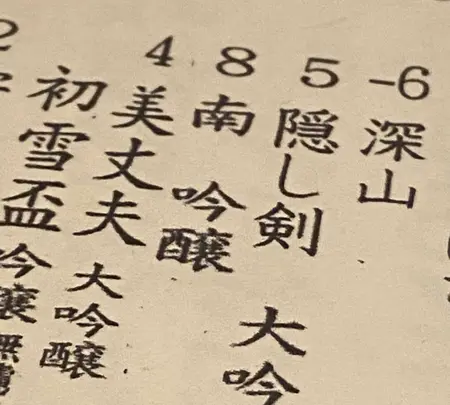 -6 深山
5 隠し剣 大吟
8 南 吟醸
4 美丈夫 大吟醸
初雪盃 吟醸無濾
2